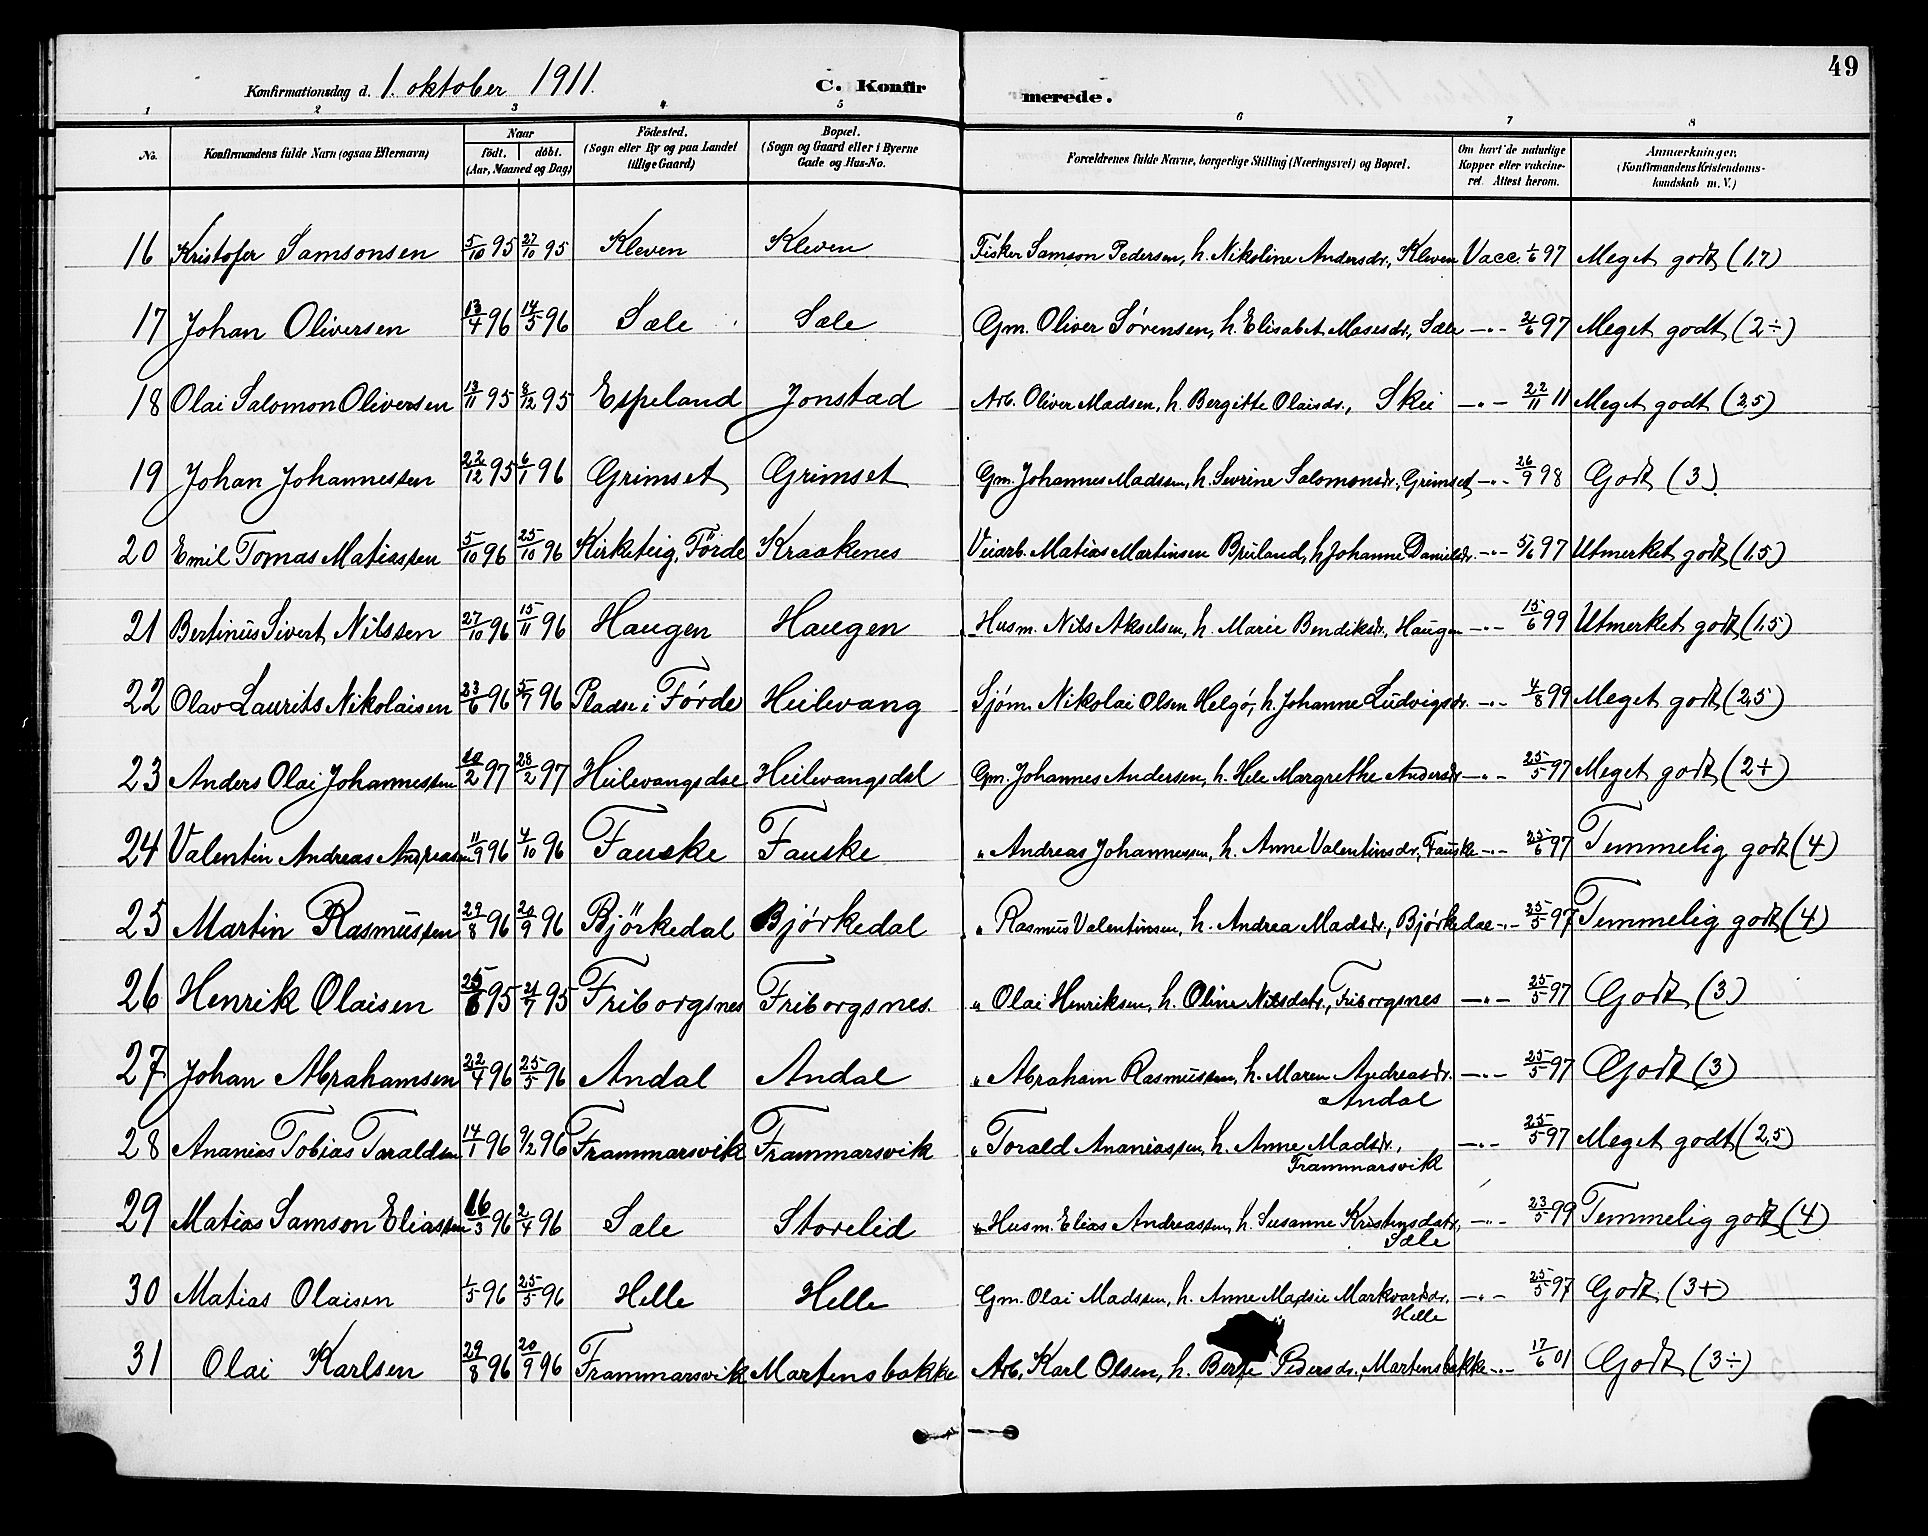 49
Konfirmationsdag d. 1. oktober 1911.
C. Konfirmerede.
1 2 3 4 5 6 7 8
No. Konfirmandens fulde Navn (ogsaa Efternavn) Naar født. døbt. (Aar, Maaned og Dag) Fødested. (Sogn eller By og paa Landet tillige Gaard) Bopæl. (Sogn og Gaard eller i Byerne Gade og Hus-No. Forældrenes fulde Navne, borgerlige Stilling (Næringsvei) og Bopæl. Om havt de naturlige Kopper eller vakcineret. Attest herom. Anmærkninger. (Konfirmandens Kristendomskundskab m. V.)
16 Kristofer Samsonsen 5/10 95 27/10 95 Kleven Kleven Fisker Samson Pedersen, h. Nikoline Andersdr., Kleven Vacc. 1/6 97 Meget godt (1,7)
17 Johan Oliversen 13/4 96 14/5 96 Sæle Sæle Gm. Oliver Sørensen, h. Elisabet Mosesdr., Sæle -"- 21/6 97 Meget godt (2÷)
18 Olai Salomon Oliversen 13/11 95 8/12 95 Espeland Jonstad Arb. Oliver Madsen, h. Bergitte Olaisdr., Skei -"- 22/11 11 Meget godt (2,5)
19 Johan Johannessen 22/12 95 6/1 96 Grimset Grimset Gm. Johannes Madssen, h. Sevrine Salomonsdr., Grimset -"- 26/9 98 Godt (3)
20 Emil Tomas Matiassen 5/10 96 25/10 96 Kirketeig, Förde Kraakenes Veiarb. Matias Martinsen Bruland, h. Johanne Danielsdr. -"- 5/6 97 Utmerket godt (1,5)
21 Bertinus Sivert Nilssen 27/10 96 15/11 96 Haugen Haugen Husm. Nils Akselsen, h. Marie Bendiksdr., Haugen -"- 15/6 99 Utmerket godt (1,5)
22 Olav Laurits Nikolaisen 23/6 96 5/7 96 Pladse i Førde Heilevang Sjøm. Nikolai Olsen Helgø, h. Johanne Ludvigsdr. -"- 4/8 99 Meget godt (2,5)
23 Anders Olai Johannessen 10/2 97 28/2 97 Heilevangsdal Heilevangsdal Gm. Johannes Andersen, h. Hele Margrethe Andersdr -"- 25/5 97 Meget godt (2+)
24 Valentin Andreas Andreassen 11/9 96 4/10 96 Fauske Fauske " Andreas Johannessen, h. Anne Valentinsdr., Fauske -"- 25/6 97 Temmelig godt (4)
25 Martin Rasmussen 29/8 96 20/9 96 Björkedal Bjørkedal " Rasmus Valentinsen, h. Andrea Madsdr., Bjørkedal -"- 25/5 97 Temmelig godt (4)
26 Henrik Olaisen 25/6 95 21/7 95 Friborgsnes Friborgsnes. " Olai Henriksen, h. Oline Nilsdatr., Friborgsnes -"- 25/5 97 Godt (3)
27 Johan Abrahamsen 22/4 96 25/5 96 Andal Andal " Abraham Rasmussen, h. Maren Andreasdr. -"- 25/5 97 Godt (3)
Andal
28 Ananias Tobias Taraldsen 14/1 96 9/2 96 Frammarsvik Frammarsvik " Torald Ananiassen, h. Anne Madsdr., -"- 25/5 97 Meget godt (2,5)
Frammarsvik
29 Matias Samson Eliassen 16/3 96 2/4 96 Sæle Storelid " Husm. Elias Andreassen, h. Susanne Kristensdatr, -"- 23/5 99 Temmelig godt (4)
Sæle
30 Matias Olaisen 1/5 96 25/5 96 Helle Helle Gm. Olai Madssen, h. Anne Madsie Markvardsdr, -"- 25/5 97 Godt (3+)
Helle
31 Olai Karlsen 29/8 96 20/9 96 Frammarsvik Martensbakke Arb. Karl Olsen, h. Berte Pedersdr., Martensbakke -"- 17/6 01 Godt (3÷)